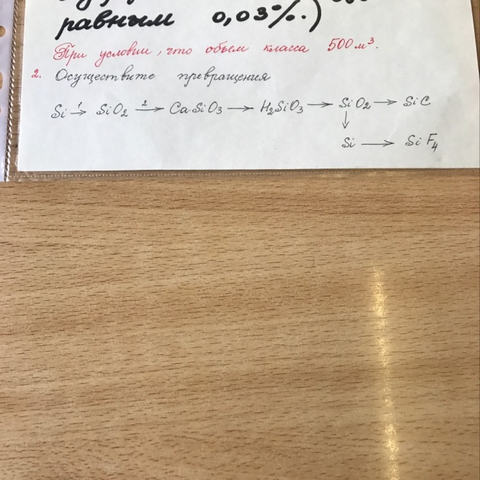 равным 0,03%.)
При условии, что объем класса 500 м³.
2. Осуществите превращения
Si →¹ SiO₂ →² CaSiO₃ → H₂SiO₃ → SiO₂ → SiC
↓
Si → SiF₄